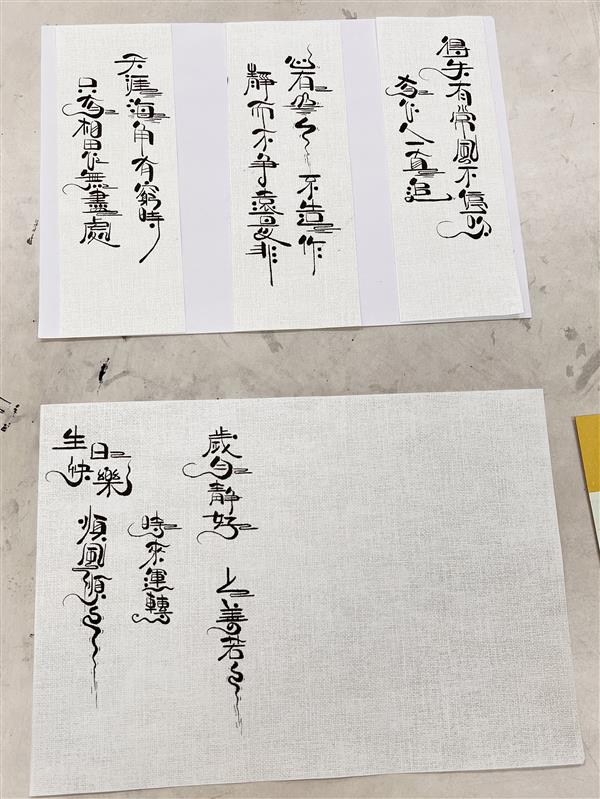 得失有常風不
一直追
心若水不造作
靜而不爭遠是非
天涯海角有窮時
只有相思無盡處
歲月靜好
上善若水
時來運轉
生日
快樂
順風順水